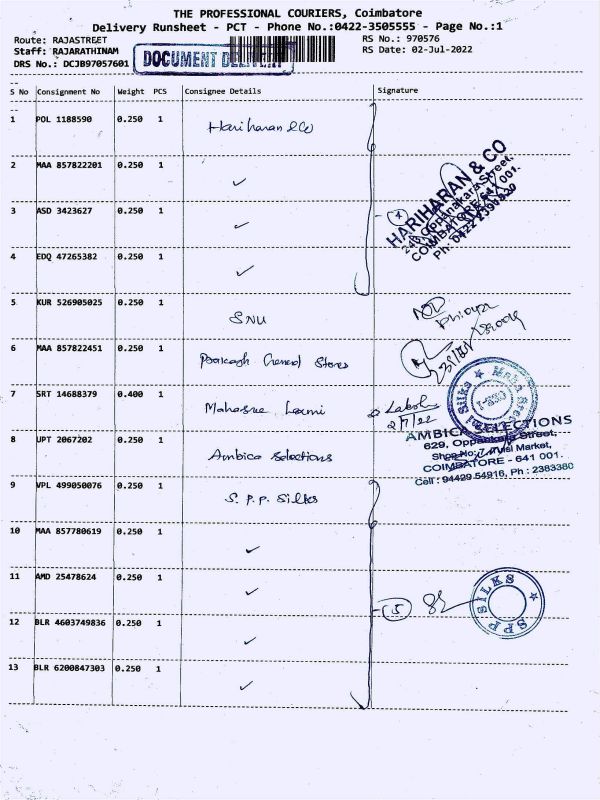 THE PROFESSIONAL COURIERS, Coimbatore
Delivery Runsheet - PCT - Phone No.:0422-3505555 - Page No.:1
Route: RAJASTREET RS No.: 970576
Staff: RAJARATHINAM RS Date: 02-Jul-2022
DRS No.: DCJB97057601 DOCUMENT
S No Consignment No Weight PCS Consignee Details Signature
1 POL 1188590 0.250 1 Hariharan & Co
2 MAA 857822201 0.250 1 ✓
3 ASD 3423627 0.250 1 ✓
4 EDQ 47265382 0.250 1 ✓
4
HARIHARAN & CO
Oppanakara Street,
COIMBATORE 641 001.
5 KUR 526905025 0.250 1 SNU
6 MAA 857822451 0.250 1 General Stores
7 SRT 14688379 0.400 1 Mahasree Laxmi
2/7/22
8 UPT 2067202 0.250 1 Ambica Selections
AMBICA SELECTIONS
629, Oppankara Street,
Shop No: 7, Tulsi Market,
COIMBATORE - 641 001.
Cell : 94429 54916, Ph : 2383380
9 VPL 499050076 0.250 1 S.P.P. Silks
10 MAA 857780619 0.250 1 ✓
11 AMD 25478624 0.250 1 ✓
12 BLR 4603749836 0.250 1 ✓
5
SPP SILKS
13 BLR 6200847303 0.250 1 ✓